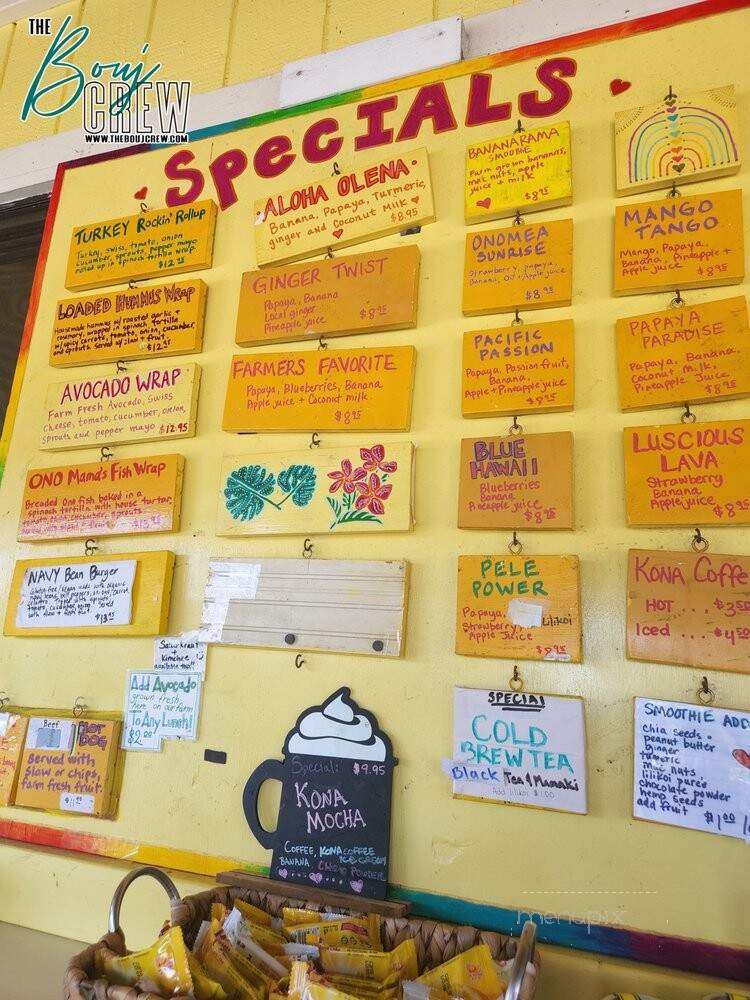 THE
Bouj
CREW
WWW.THEBOUJCREW.COM
SpeciaLs
TURKEY Rockin' Rollup
Turkey, swiss, tomato, onion
cucumber, sprouts, pepper mayo
rolled up in spinach tortilla wrap.
$12.95
LOADED HUMMUS WRAP
Housemade hummus w/roasted garlic +
rosemary, wrapped in spinach tortilla
w/spicy carrots, tomato, onion, cucumber,
and sprouts. Served w/slaw + fruit.
$12.95
AVOCADO WRAP
Farm Fresh Avocado, Swiss
cheese, tomato, cucumber, onion,
sprouts and pepper mayo $12.95
ONO Mama's Fish Wrap
Breaded Ono fish baked in a
spinach tortilla with house tartar,
tomato, onion, cucumber, sprouts.
served with slaw + fruit. $13.95
NAVY Bean Burger
$13.95
Saurkraut
+
Kimchee
available too!!
Add Avocado
grown fresh
here on our farm
To Any Lunch!
$2
Beef
HOT
DOG
Served with
slaw or chips,
farm fresh fruit.
$11
ALOHA OLENA
Banana, Papaya, Turmeric,
ginger and Coconut Milk
$8.95
GINGER TWIST
Papaya, Banana
Local ginger
Pineapple juice
$8.95
FARMERS FAVORITE
Papaya, Blueberries, Banana
Apple juice + Coconut milk
$8.95
Special:
$9.95
KONA
MOCHA
COFFEE, KONA COFFEE
ICE CREAM
BANANA, CHOCO POWDER
BANANARAMA
SMOOTHIE
Farm grown bananas,
mac nuts, apple
juice + milk
$8.95
ONOMEA
SUNRISE
Strawberry, papaya,
Banana, OJ + Apple juice
$8.95
PACIFIC
PASSION
Papaya, Passion fruit,
Banana,
Apple + Pineapple juice
$8.95
BLUE
HAWAII
Blueberries
Banana
Pineapple juice
$8.95
PELE
POWER
Papaya, Lilikoi
Strawberry
Apple Juice
$8.95
SPECIAL
COLD
BREW TEA
Black Tea & Mamaki
Add lilikoi $1.00
MANGO
TANGO
Mango, Papaya,
Banana, Pineapple +
Apple juice
$8.95
PAPAYA
PARADISE
Papaya, Banana,
Coconut milk,
Pineapple Juice
$8.95
LUSCIOUS
LAVA
Strawberry
Banana
Apple Juice
$8.95
KONA Coffe
HOT ... $3.50
Iced ... $4.50
SMOOTHIE ADD
chia seeds
peanut butter
ginger
turmeric
mac nuts,
lilikoi puree
chocolate powder
hemp seeds
add fruit
$1.00
menupix